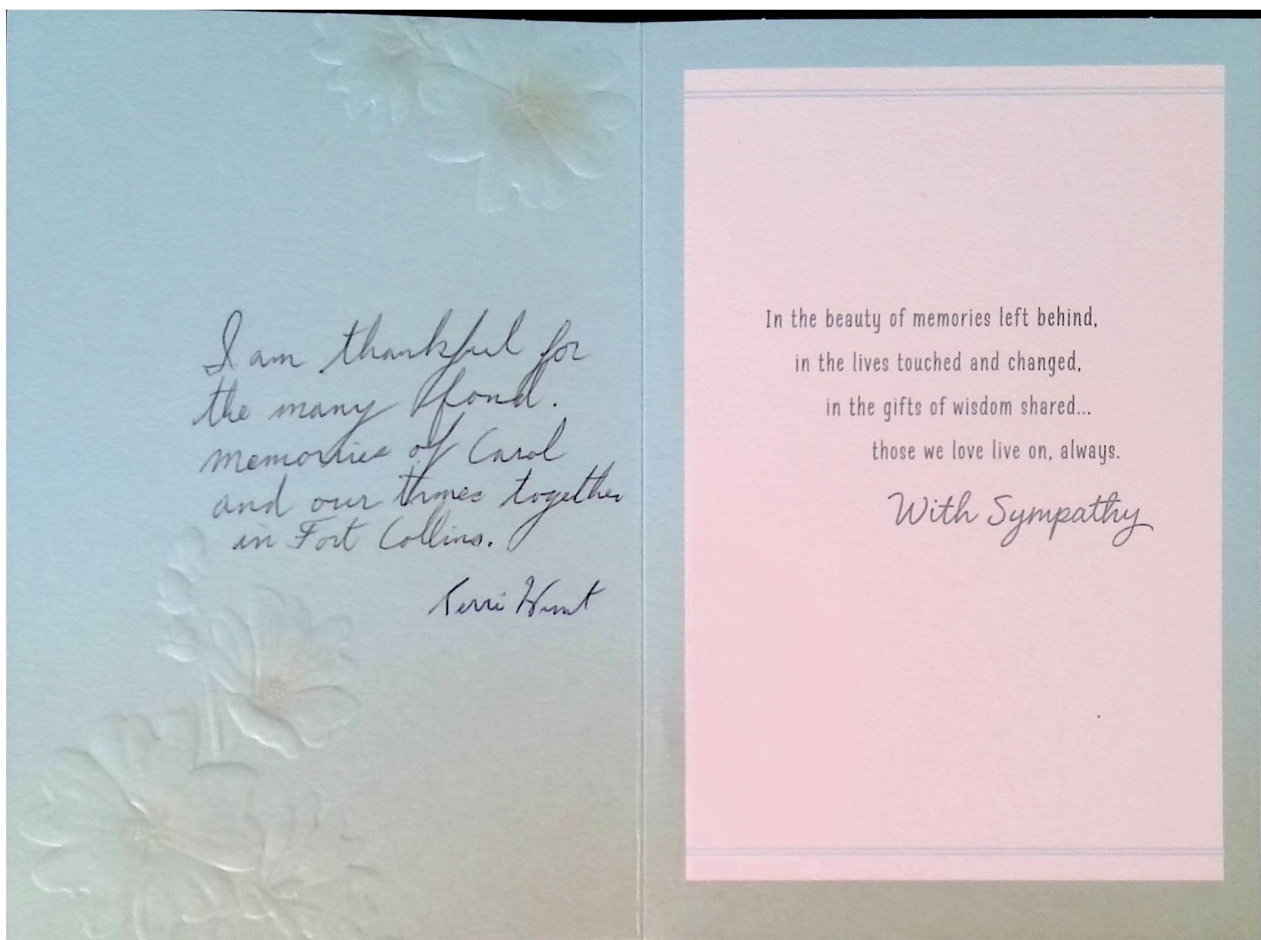 I am thankful for
the many fond.
memories of Carol
and our times together
in Fort Collins.
Terri Hunt
In the beauty of memories left behind,
in the lives touched and changed,
in the gifts of wisdom shared...
those we love live on, always.
With Sympathy